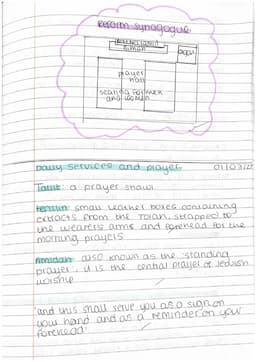 Reform synagogue
prayer
hall
seating for men
and women
Daily services and prayer 01/03/22
Tallit: a prayer shawl
Tefillin: small leather boxes containing
extracts from the Torah, strapped to
the wearers arms and forehead for the
morning prayers
Amidah: also known as the 'standing
prayer', it is the central prayer of Jewish
worship
and this shall serve you as a sign on
your hand and as a reminder on your
forehead